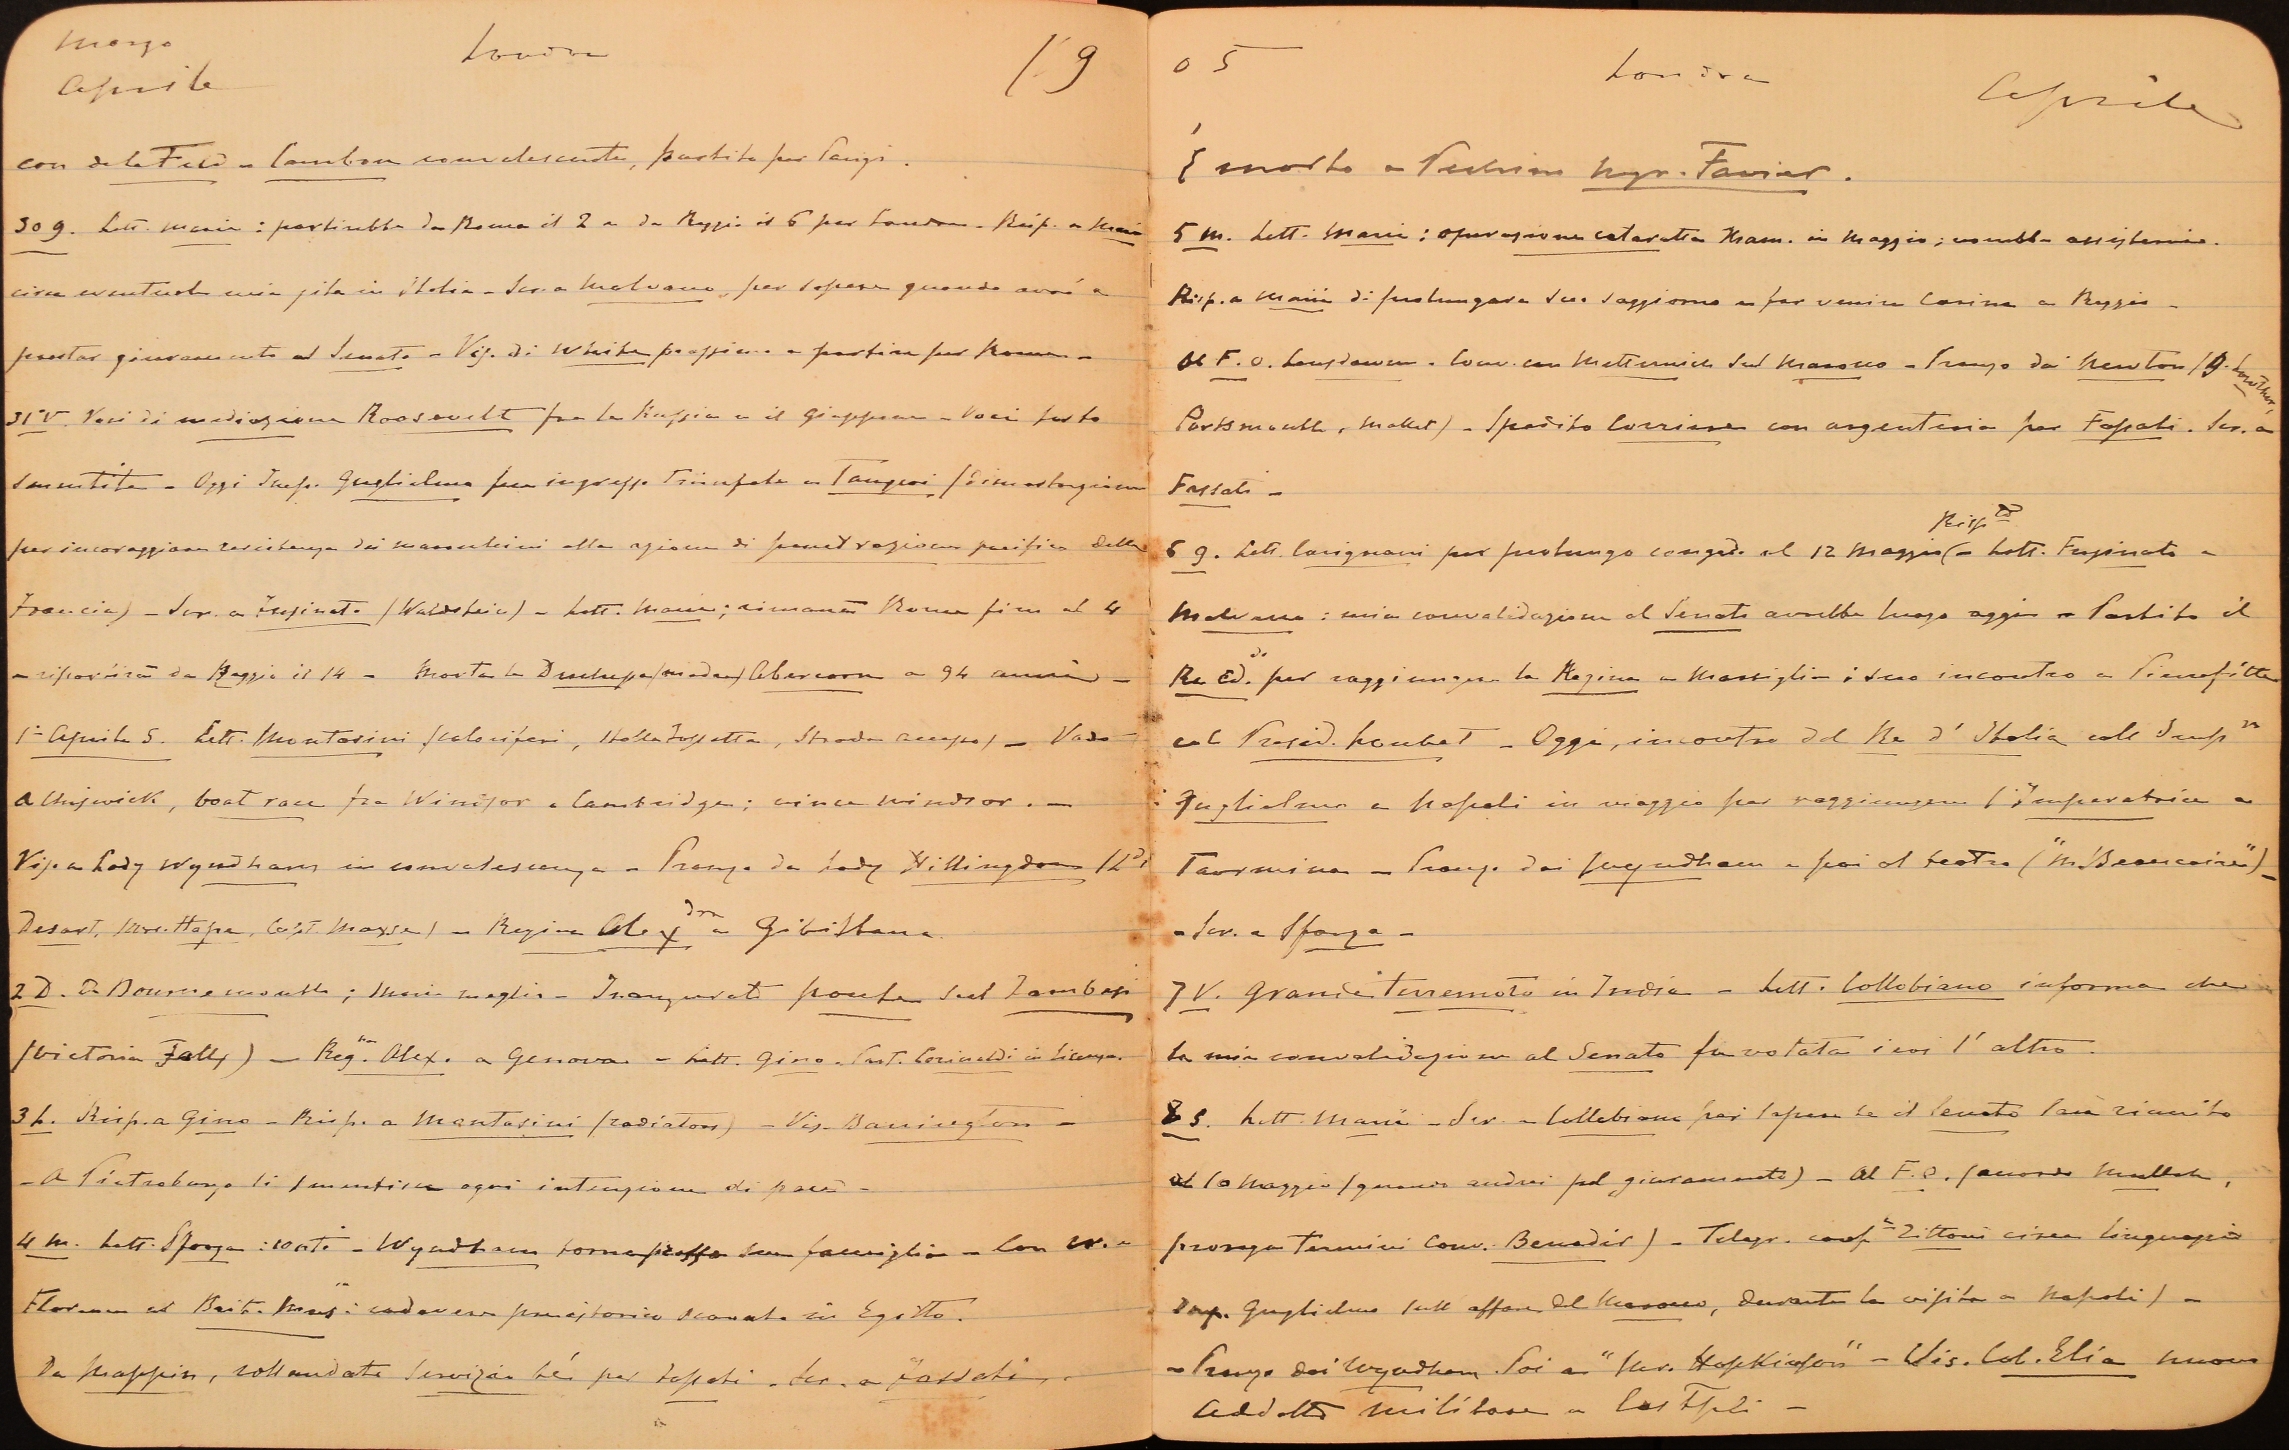 Marzo
Aprile
Londra
19
con de la Feld - Cambon convalescente, partito per Parigi.
30 g. Lett. Maria : partirebbe da Roma il 2 e da Reggio il 6 per Londra - Risp. a Maria
circa eventuale mia gita in Italia - Scr. a Malvano, per sapere quando avrò a
prestar giuramento al Senato - Vis. di White prossimo a partire per Roma -
31 V. Voci di mediazione Roosevelt fra la Russia e il Giappone - Voci tosto
smentite - Oggi Imp. Guglielmo fece ingresso trionfale a Tangeri (dimostrazione
per incoraggiare resistenza dei marocchini alla azione di penetrazione pacifica della
Francia) - Scr. a Fusinato (Waldstein) - Lett. Maria; rimarrà Roma fino al 4
e ripartirà da Reggio il 14 - Morta la Duchessa (madre) Abercorn a 94 anni -
1° Aprile S. Lett. Montasini (caloriferi, Stalla Fossetta, Strada accesso) - Vado
a Chiswick, boat race fra Windsor e Cambridge; vince Windsor. -
Vis. a Lady Wyndham in convalescenza - Pranzo da Lady Hillingdon (Ld
Desart, Mrs. Hope, Capt. Maxse) - Regina Alexdra a Gibilterra
2 D. A Bournemouth; Maria meglio - Inaugurato ponte sul Zambesi
(Victoria Falls) - Reg.na Alex. a Genova - Lett. Gino - Part. Corinaldi in licenza.
3 L. Risp. a Gino - Risp. a Montasini (radiatori) - Vis. Barrington -
- A Pietroburgo si smentisce ogni intenzione di pace -
4 M. Lett. Sforza : conti - Wyndham torna presso sua famiglia - Con W. e
Florence al Brit. Mus. : cadavere preistorico scavato in Egitto.
Da Mappin, comandato servizio thé per Fassati - Scr. a Fassati.
05
Londra
Aprile
È morto a Pechino Mgr. Favier.
5 M. Lett. Maria : operazione cataratta Mam. in Maggio; vorrebbe assistervi.
Risp. a Maria di prolungare suo soggiorno e far venire Carina a Reggio -
Al F. O. Lansdowne - Conv. con Metternich sul Marocco - Pranzo dai Newton (G. Lowther,
Portsmouth, Mallet) - Spedito Corriere con argenteria per Fassati. Scr. a
Fassati -
6 g. Lett. Carignani per prolungo congedo al 12 Maggio (Rispto - Lett. Fusinato e
Malvano : mia convalidazione al Senato avrebbe luogo oggi - Partito il
Re Ed.do per raggiungere la Regina a Marsiglia; suo incontro a Pierrefitte
col Presid. Loubet - Oggi, incontro del Re d'Italia coll' Impre
Guglielmo a Napoli in viaggio per raggiungere l'Imperatrice a
Taormina - Pranzo dai Wyndham e poi al teatro ("M. Beaucaire") -
- Scr. a Sforza -
7 V. Grande terremoto in India - Lett. Collobiano informa che
la mia convalidazione al Senato fu votata ieri l'altro.
8 S. Lett. Maria - Scr. a Collobiano per sapere se il Senato sarà riunito
al 10 Maggio (quando andrei pel giuramento) - Al F. O. (accordo Mullah,
proroga termini Conv. Benadir) - Telegr. conf. Tittoni circa linguaggio
Imp. Guglielmo sull' affare del Marocco, durante la visita a Napoli) -
- Pranzo dai Wyndham. Poi a "Mr. Hopkinson" - Vis. Col. Elia nuovo
Addetto militare a CosTpli -